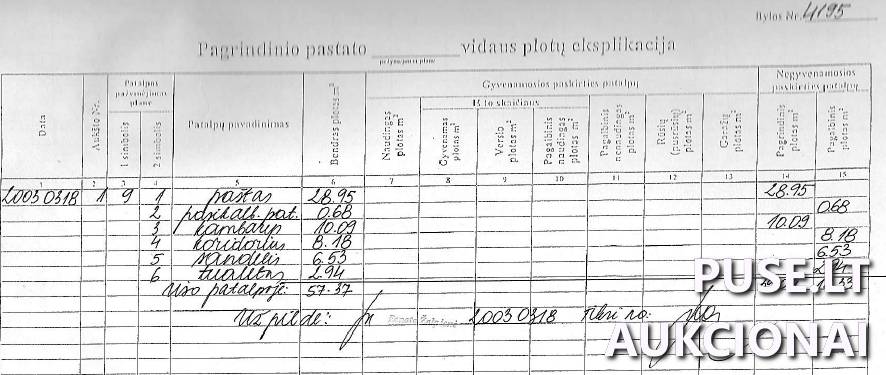 Bylos Nr. 4195
Pagrindinio pastato ________ vidaus plotų eksplikacija
pažymėjimas plane
Data
Aukšto Nr.
Patalpos pažymėjimas plane
1 simbolis
2 simbolis
Patalpų pavadinimas
Bendras plotas m²
Gyvenamosios paskirties patalpų
Naudingas plotas m²
Iš to skaičiaus
Gyvenamas plotas m²
Verslo plotas m²
Pagalbinis naudingas plotas m²
Pagalbinis nenaudingas plotas m²
Rūsių (pusrūsių) plotas m²
Garažų plotas m²
Negyvenamosios paskirties patalpų
Pagrindinis plotas m²
Pagalbinis plotas m²
1 2 3 4 5 6 7 8 9 10 11 12 13 14 15
20030318 1 9 1 paštas 28.95 28.95
2 pat. 0.68 0.68
3 kambarys 10.09 10.09
4 koridorius 8.18 8.18
5 sandėlis 6.53 6.53
6 tualetas 2.94 2.94
Viso patalpoje: 57.37
Užpildė: 20030318 Tikrino:
PUSE.LT
AUKCIONAI